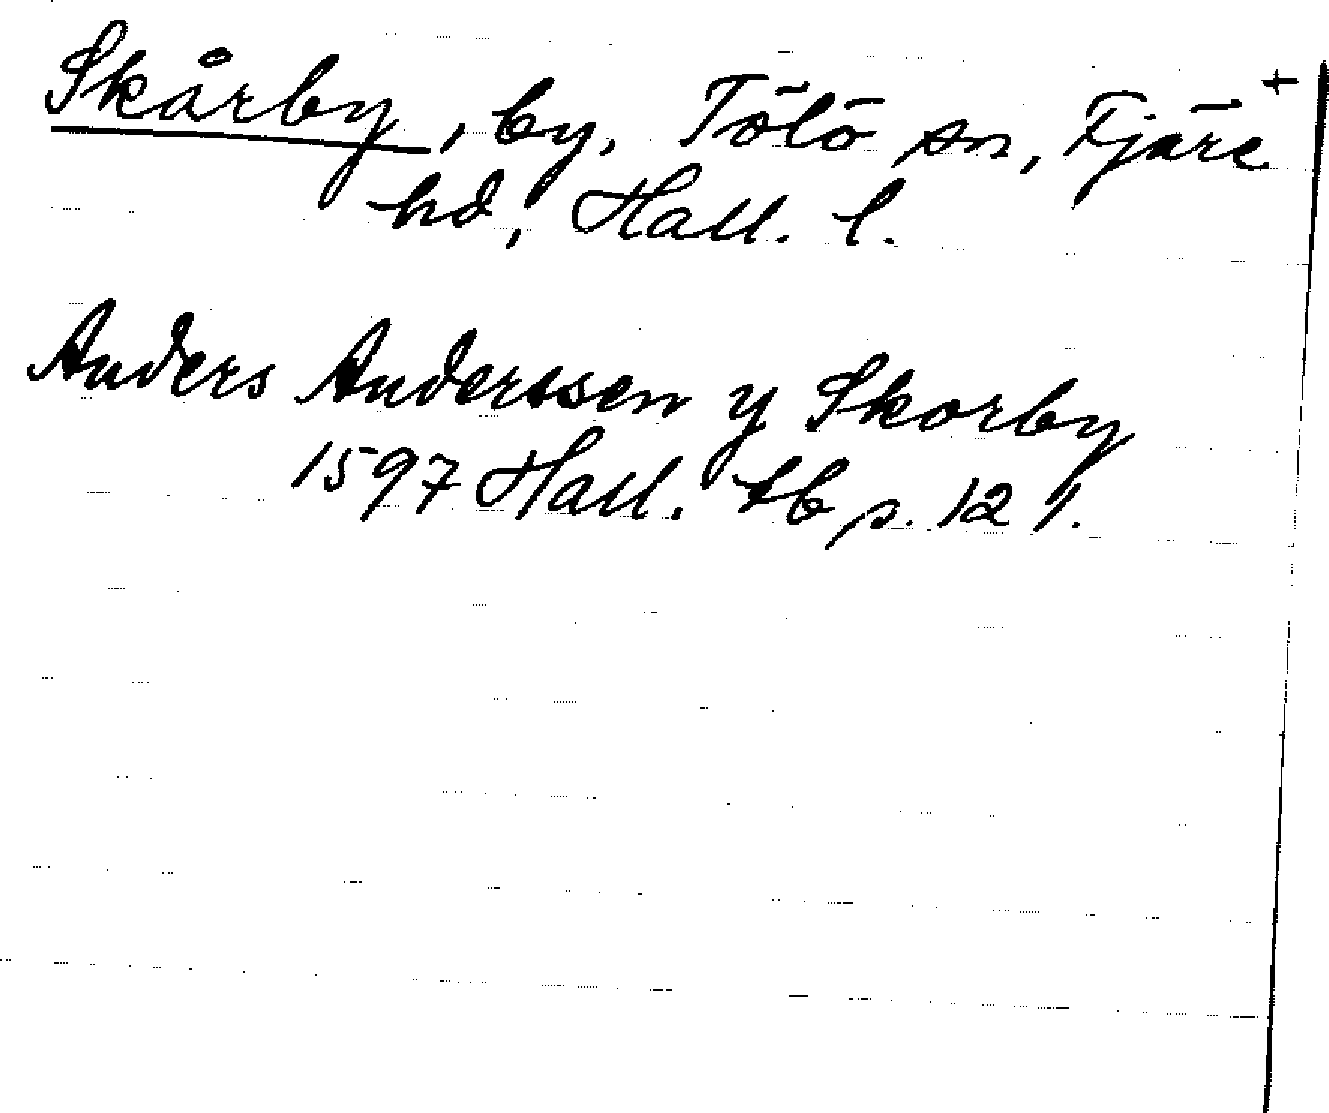 Skårby, by, Tölö sn, Fjäre +
hd, Hall. l.
Anders Anderssen y Skorby
1597 Hall. tb p. 12 1.